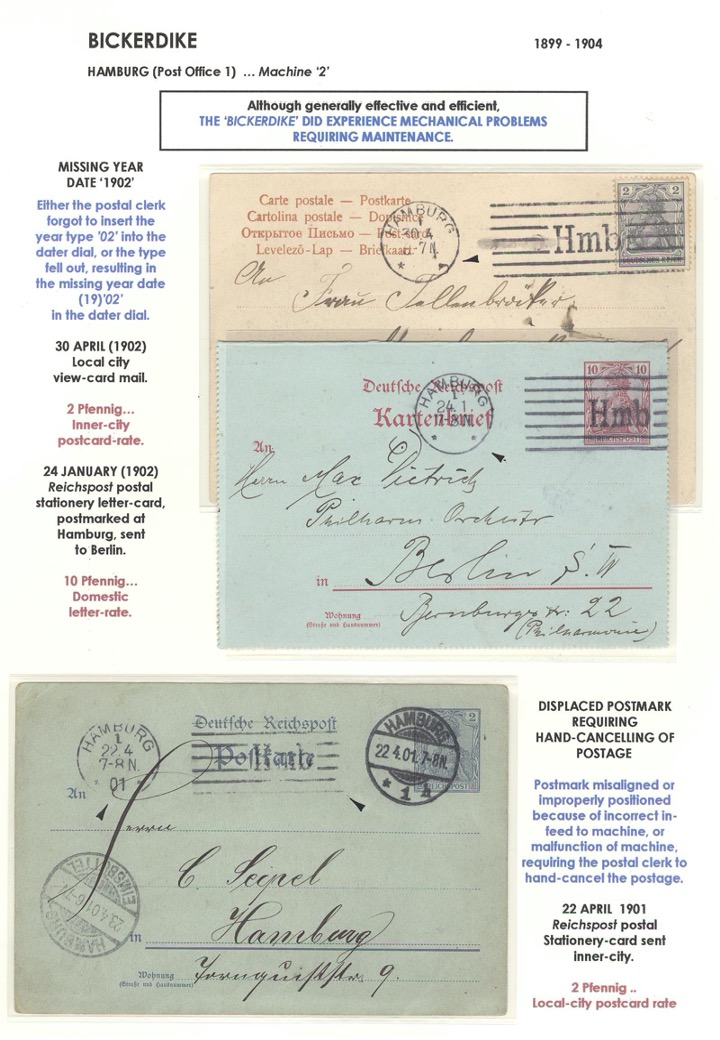 BICKERDIKE
1899 - 1904
HAMBURG (Post Office 1) ... Machine '2'
Although generally effective and efficient,
THE 'BICKERDIKE' DID EXPERIENCE MECHANICAL PROBLEMS
REQUIRING MAINTENANCE.
MISSING YEAR
DATE '1902'
Either the postal clerk
forgot to insert the
year type '02' into the
dater dial, or the type
fell out, resulting in
the missing year date
(19)'02'
in the dater dial.
30 APRIL (1902)
Local city
view-card mail.
2 Pfennig...
Inner-city
postcard-rate.
24 JANUARY (1902)
Reichspost postal
stationery letter-card,
postmarked at
Hamburg, sent
to Berlin.
10 Pfennig...
Domestic
letter-rate.
Carte postale — Postkarte
Cartolina postale —
Открытое Письмо —
Levelező-Lap — Briefkaart
HAMBURG
1
30.4
7N.
Hmb
2 2
An
Frau
Deutsche Reichspost
Kartenbrief
HAMBURG
1
24.1
7-8N.
Hmb
10 10
REICHSPOST
An
Herrn Max Dietrich
Philharm. Orchester
in Berlin S. W
Wohnung
(Straße und Hausnummer)
Bernburgerstr. 22
(Philharmonie)
HAMBURG
1
22.4
7-8N.
* 01 *
Deutsche Reichspost
Postkarte
HAMBURG
22.4.01.7-8N.
* 1 *
2
REICHSPOST
An
Herrn
C. Seipel
in Hamburg
Wohnung
(Straße und Hausnummer)
Tornquiststr. 9.
HAMBURG
23.4.01
EIMSBÜTTEL
DISPLACED POSTMARK
REQUIRING
HAND-CANCELLING OF
POSTAGE
Postmark misaligned or
improperly positioned
because of incorrect in-
feed to machine, or
malfunction of machine,
requiring the postal clerk to
hand-cancel the postage.
22 APRIL 1901
Reichspost postal
Stationery-card sent
inner-city.
2 Pfennig ..
Local-city postcard rate